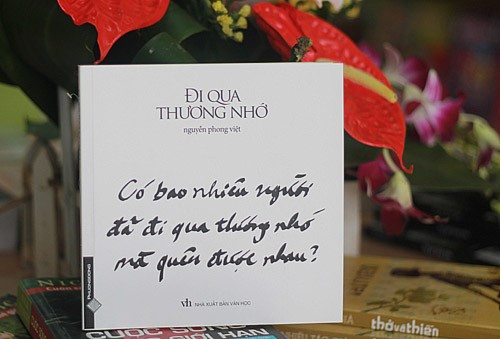 ĐI QUA
THƯƠNG NHỚ
nguyễn phong việt
Có bao nhiêu người
đã đi qua thương nhớ
mà quên được nhau?
PHUONGBOOKS
vh NHÀ XUẤT BẢN VĂN HỌC
CUỘC SỐNG
GIỚI HẠN
thở và thiền